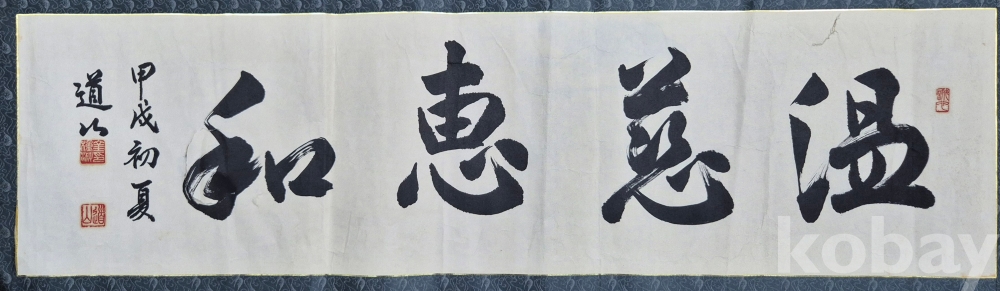 温慈惠和
甲戌初夏
道以
kobay